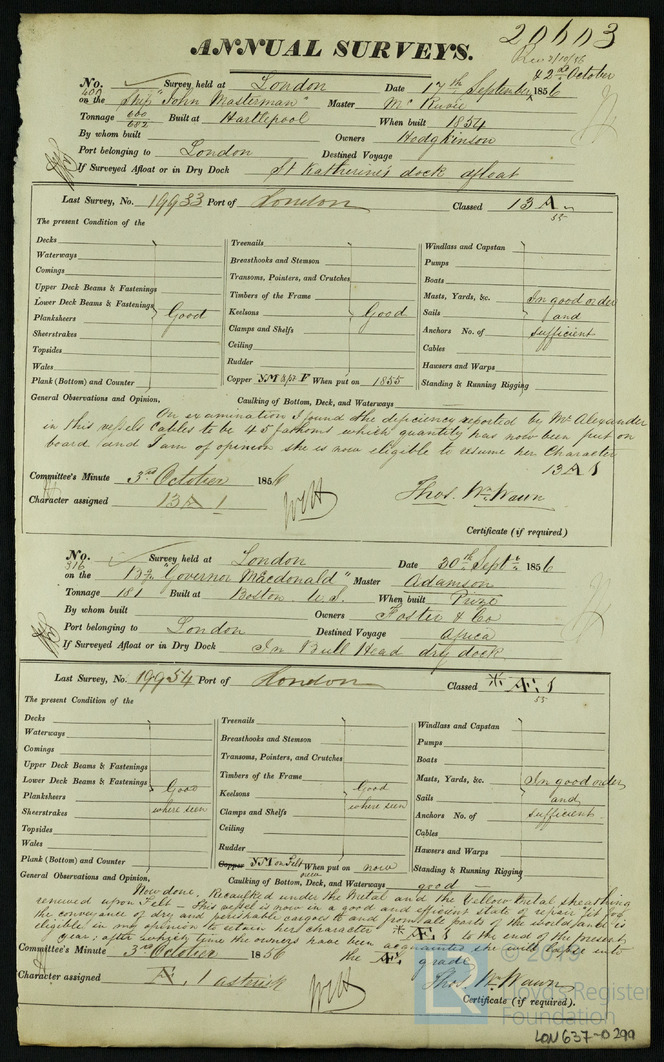 20603
ANNUAL SURVEYS.
Rec 2/10/56
& 2nd October
No. 400 Survey held at London Date 17th September 1856
on the Ship "John Masterman" Master Mc
Tonnage 660 / 682 Built at Hartlepool When built 1854
By whom built Owners Hodgkinson
Port belonging to London Destined Voyage
If Surveyed Afloat or in Dry Dock St Katherine's dock afloat
Last Survey, No. 19933 Port of London Classed 13 A 1
55
The present Condition of the
Decks
Waterways
Comings
Upper Deck Beams & Fastenings
Lower Deck Beams & Fastenings
Planksheers Good
Sheerstrakes
Topsides
Wales
Plank (Bottom) and Counter
Treenails
Breasthooks and Stemson
Transoms, Pointers, and Crutches
Timbers of the Frame
Keelsons Good
Clamps and Shelfs
Ceiling
Rudder
Copper YM over F When put on 1855
Windlass and Capstan
Pumps
Boats
Masts, Yards, &c. In good order
Sails and
Anchors No. of sufficient
Cables
Hawsers and Warps
Standing & Running Rigging
General Observations and Opinion, Caulking of Bottom, Deck, and Waterways
On examination I found the deficiency reported by Mr Alexander
in this vessels Cables to be 45 fathoms which quantity has now been put on
board and I am of opinion she is now eligible to resume her Character
13 A 1
Committee's Minute 3rd October 1856
Character assigned 13 A 1
Thos. Wm. Wawn
Certificate (if required)
No. 316 Survey held at London Date 30th Septr 1856
on the Bgn "Governor Macdonald" Master Adamson
Tonnage 181 Built at Boston U.S. When built Prize
By whom built Owners Foster & Co
Port belonging to London Destined Voyage Africa
If Surveyed Afloat or in Dry Dock In Bull Head dry dock
Last Survey, No. 19954 Port of London Classed * Æ 1
55
The present Condition of the
Decks
Waterways
Comings
Upper Deck Beams & Fastenings
Lower Deck Beams & Fastenings Good
Planksheers
Sheerstrakes where seen
Topsides
Wales
Plank (Bottom) and Counter
Treenails
Breasthooks and Stemson
Transoms, Pointers, and Crutches
Timbers of the Frame
Keelsons Good
Clamps and Shelfs where seen
Ceiling
Rudder
Copper YM on Felt When put on now
Windlass and Capstan
Pumps
Boats
Masts, Yards, &c. In good order
Sails and
Anchors No. of sufficient
Cables
Hawsers and Warps
Standing & Running Rigging
General Observations and Opinion, Caulking of Bottom, Deck, and Waterways good
Now done. Recaulked under the Metal and the Yellow Metal sheathing
renewed upon Felt – This vessel is now in a good and efficient state of repair fit for
the conveyance of dry and perishable cargoes to and from all parts of the world and is
eligible in my opinion to retain her character * Æ 1 to the end of the present
year; after which time the owners have been acquainted she will lapse into
the Æ grade
Committee's Minute 3rd October 1856
Character assigned Æ 1 asterisk
Thos. Wm. Wawn
Certificate (if required).
© 2019
LR
Lloyd's Register
Foundation
LON 637-0299